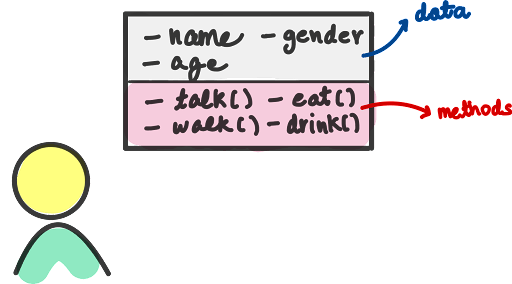 - name - gender
- age
data
- talk() - eat()
- walk() - drink()
methods